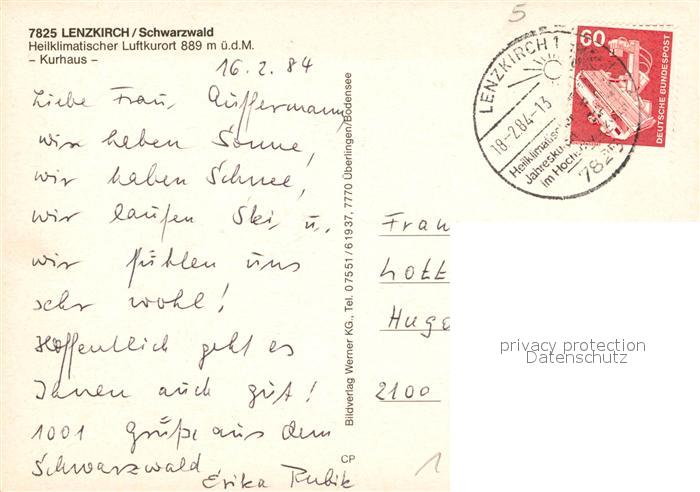 7825 LENZKIRCH / Schwarzwald
Heilklimatischer Luftkurort 889 m ü.d.M.
– Kurhaus –
16.2.84
Liebe Frau Auffermann,
wir haben Sonne,
wir haben Schnee,
wir laufen Ski, u.
wir fühlen uns
sehr wohl!
Hoffentlich geht es
Ihnen auch gut!
1001 Grüße aus dem
Schwarzwald
Erika Rubik
Bildverlag Werner KG., Tel. 0 75 51 / 6 19 37, 7770 Überlingen/Bodensee
CP
5
LENZKIRCH 1
18-2.84-13
Heilklimatischer
Jahresku
im Hoch
782
60
DEUTSCHE BUNDESPOST
Frau
Lott
Hugo
2100
1
privacy protection
Datenschutz